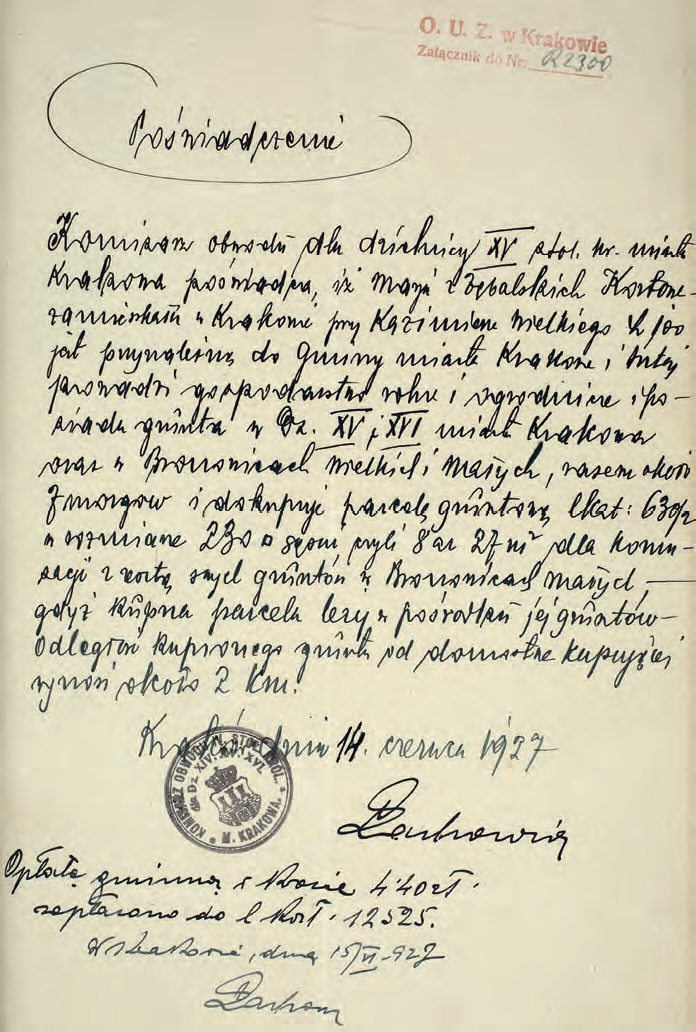 O. U. Z. w Krakowie
Załącznik do Nr. R2300
Poświadczenie
Komisarz obwodu dla dzielnicy XV stoł. kr. miasta
Krakowa poświadcza, iż Marya z Zębalskich
zamieszkała w Krakowie przy Kazimierza Wielkiego L 100
jest przynależną do Gminy miasta Krakowa i tutaj
prowadzi gospodarstwo rolne i ogrodnicze i po-
siada grunta w Dz. XV i XVI miasta Krakowa
oraz w Bronowicach Wielkich i Małych, razem około
7 morgów i dokupuje parcelę gruntową lkat: 630/2
w rozmiarze 230 □ sążni, czyli 8 ar 27 m² dla komu-
sacji z resztą swych gruntów w Bronowicach Małych,
gdyż kupna parcela leży w pośrodku jej gruntów
Odległość kupionego gruntu od domostwa kupującej
wynosi około 2 km.
Kraków dnia 14. czerwca 1927
KOMISARZ OBWODOWY STOŁ. KRÓL.
dla Dz. XIV. XV. XVI.
M. KRAKOWA.
Opłatę gminną w kwocie 4.40 zł.
zapłacono do l. 12525.
W Krakowie, dnia 15/VI 927